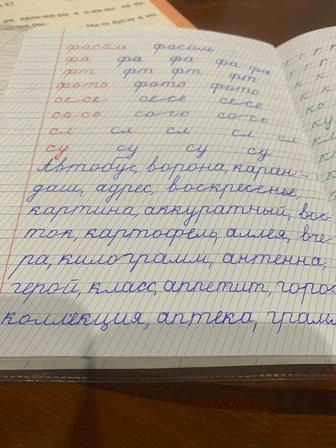 фасоль фасоль
фа фа фа фа фа
фт фт фт фт
фото фото фото
се се се се се се
со со со со со со
сл сл сл сл сл
су су су су
Автобус, ворона, каран-
даш, адрес, воскресенье,
картина, аккуратный, вос-
ток, картофель, аллея, вче-
ра, килограмм, антенна,
герой, класс, аппетит,
коллекция, аптека,